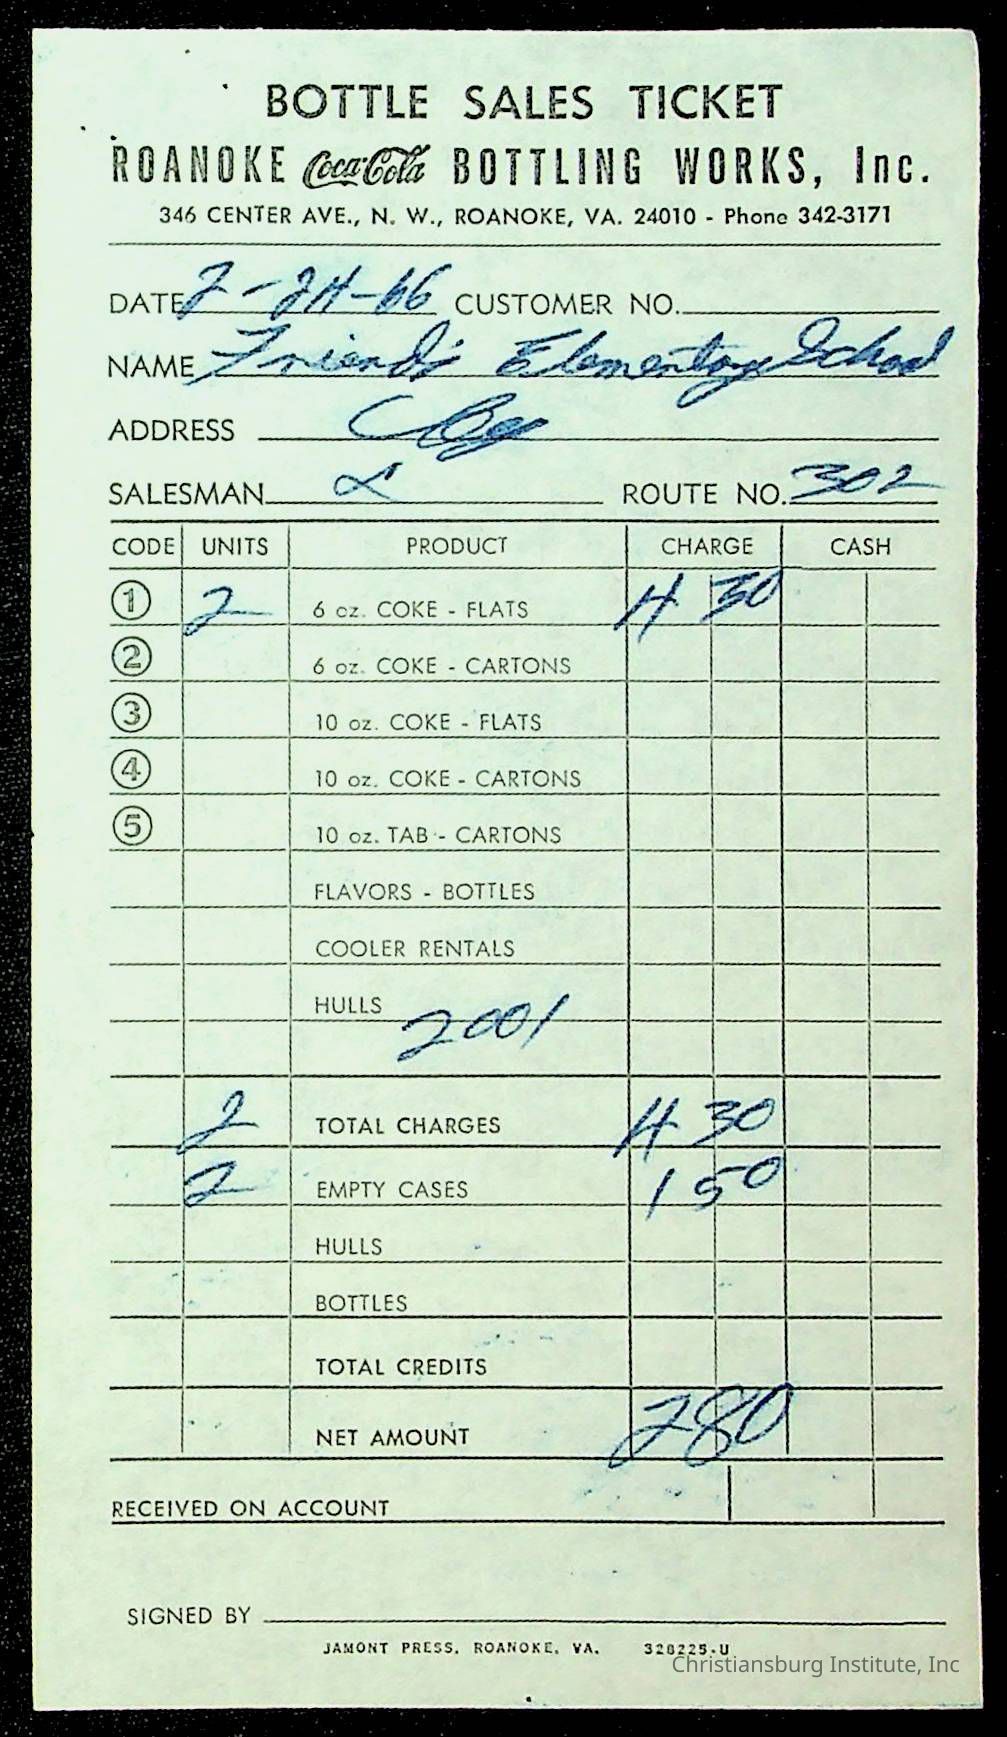 BOTTLE SALES TICKET
ROANOKE Coca-Cola BOTTLING WORKS, Inc.
346 CENTER AVE., N. W., ROANOKE, VA. 24010 - Phone 342-3171
DATE 2-24-66 CUSTOMER NO.
NAME Friends Elementary School
ADDRESS
SALESMAN ROUTE NO. 302
CODE UNITS PRODUCT CHARGE CASH
1 2 6 oz. COKE - FLATS 4 30
2 6 oz. COKE - CARTONS
3 10 oz. COKE - FLATS
4 10 oz. COKE - CARTONS
5 10 oz. TAB - CARTONS
FLAVORS - BOTTLES
COOLER RENTALS
HULLS
2001
2 TOTAL CHARGES 4 30
2 EMPTY CASES 1 50
HULLS
BOTTLES
TOTAL CREDITS
NET AMOUNT 2 80
RECEIVED ON ACCOUNT
SIGNED BY
JAMONT PRESS, ROANOKE, VA. 328225-U
Christiansburg Institute, Inc